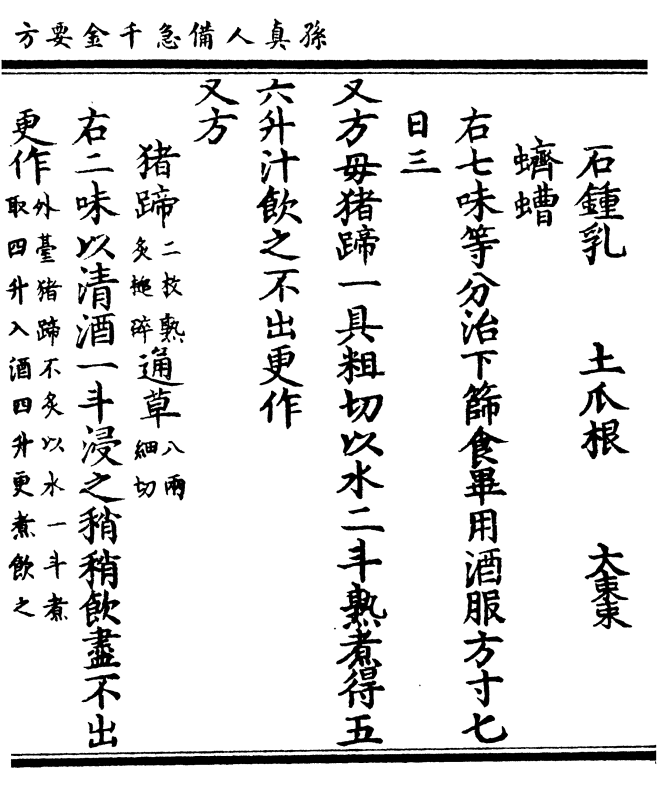 孫真人備急千金要方
石鍾乳 土爪根 大棗
蠐螬
右七味等分治下篩食畢用酒服方寸七
日三
又方毋猪蹄一具粗切以水二斗熟煮得五
六升汁飲之不出更作
又方
猪蹄二枚熟炙搥碎通草八兩細切
右二味以清酒一斗浸之稍稍飲盡不出
更作外臺猪蹄不炙以水一斗煮取四升入酒四升更煮飲之